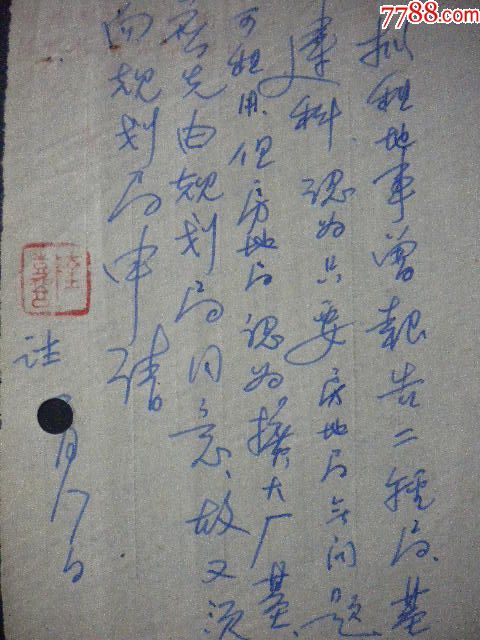 7788.com
拟租地事曾報告二轻局.基
建科.認为只要房地局无问题
可租用.但房地局認为擴大厂基.
应先由规划局同意.故又须
向规划局申請
月17日